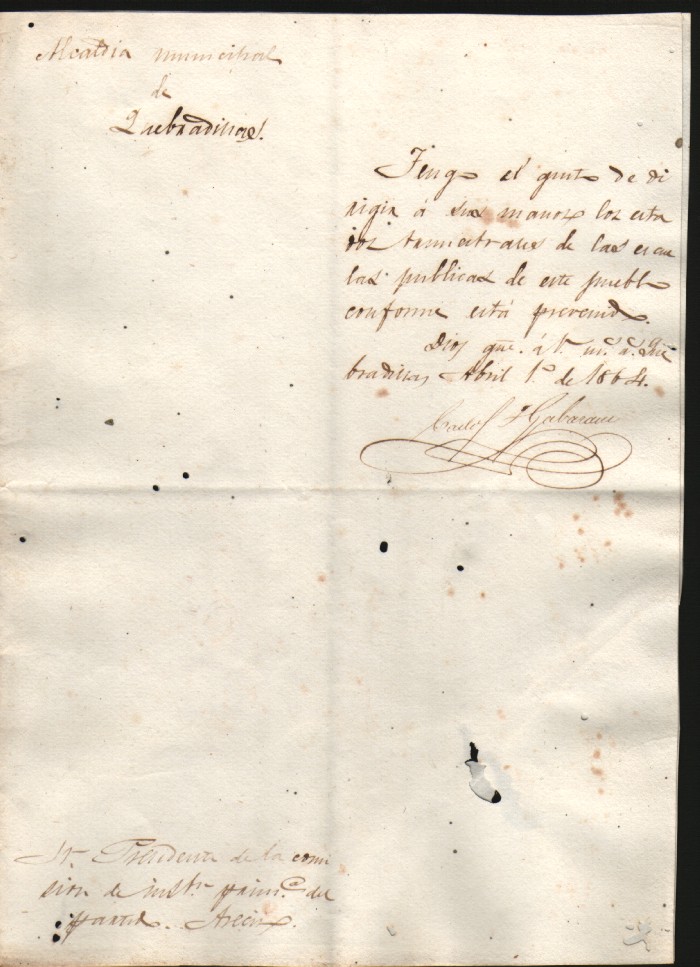 Alcaldia municipal
de
Quebradillas.
Tengo el gusto de di
rigir á sus manos los esta
dos trimestrales de las escue
las publicas de este pueblo
conforme está prevenido.
Dios gue. á V. m.s a.s Que
bradillas Abril 1.º de 1864.
Carlos
Sr. Presidente de la comi
sion de instr.n prim.ª del
partido. Arecibo.